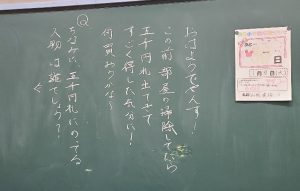 おはようでやんす!
この前部屋の掃除してたら
五千円札出てきて
すごく得した気分に!
何買おうかな〜
Q
ちなみに、五千円札にのってる
人物は誰でしょう?
日